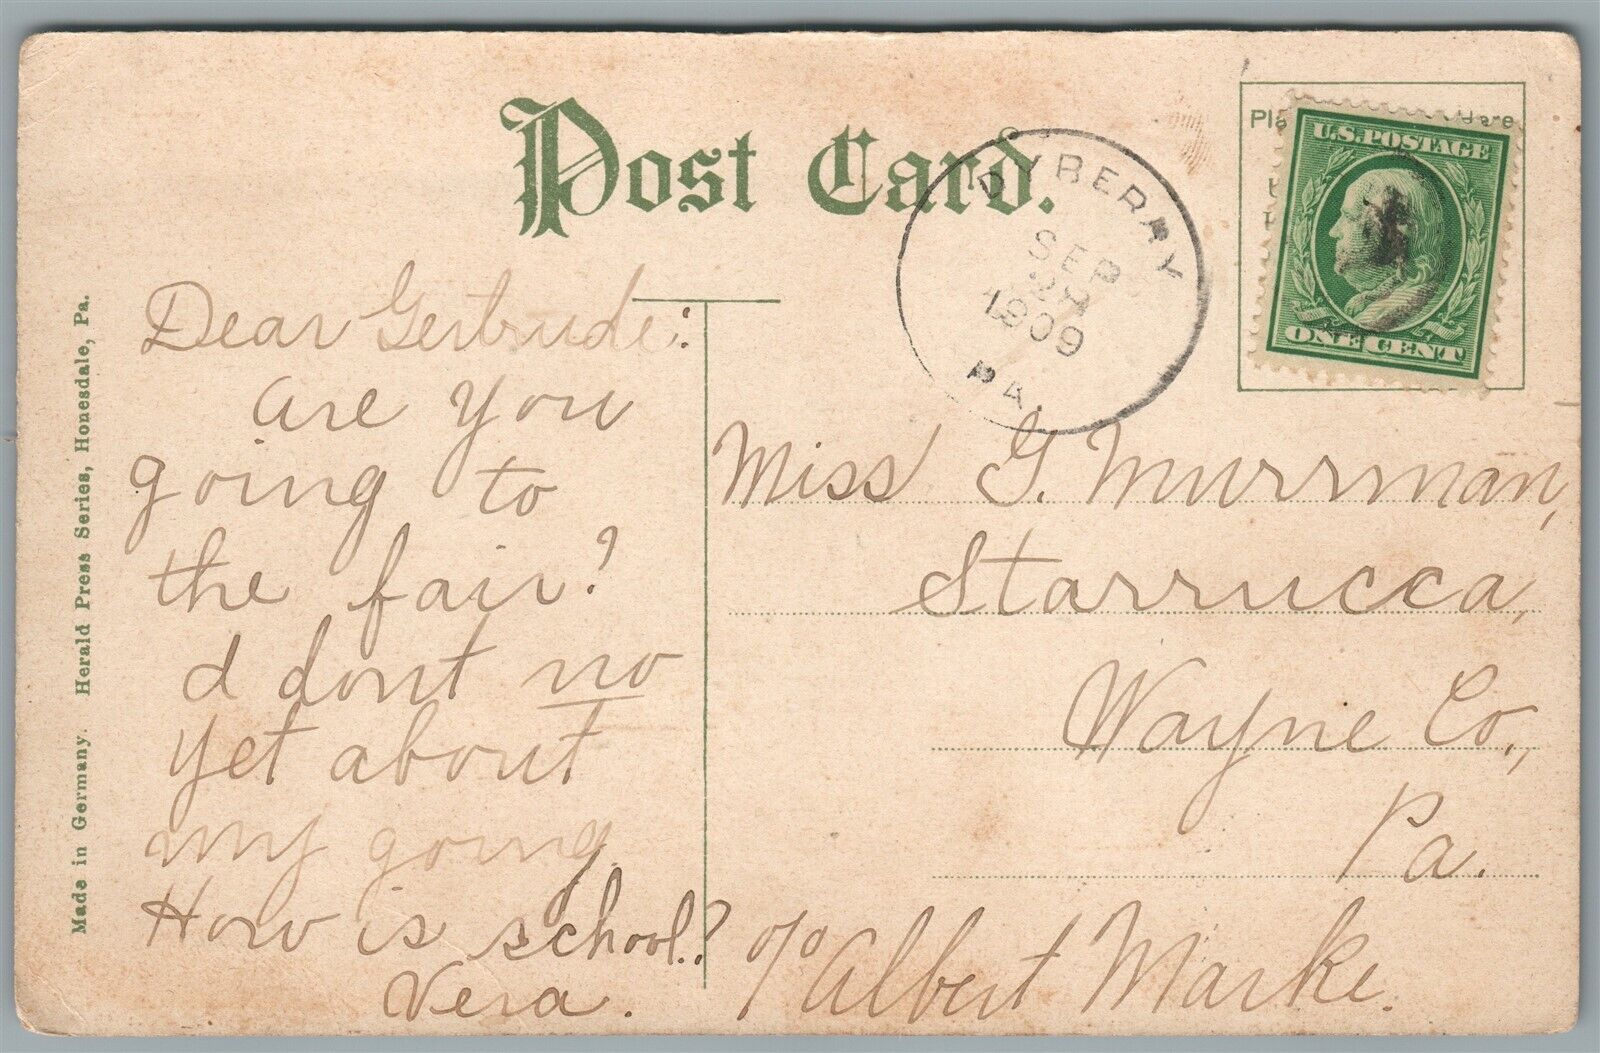 Post Card.
DYBERRY
SEP
1909
PA.
U.S. POSTAGE
ONE CENT
Made in Germany. Herald Press Series, Honesdale, Pa.
Dear Gertrude:
are you
going to
the fair?
I dont no
yet about
my going
How is school.?
Vera.
Miss G. Murrman,
Starrucca,
Wayne Co.,
Pa.
% Albert Marke.